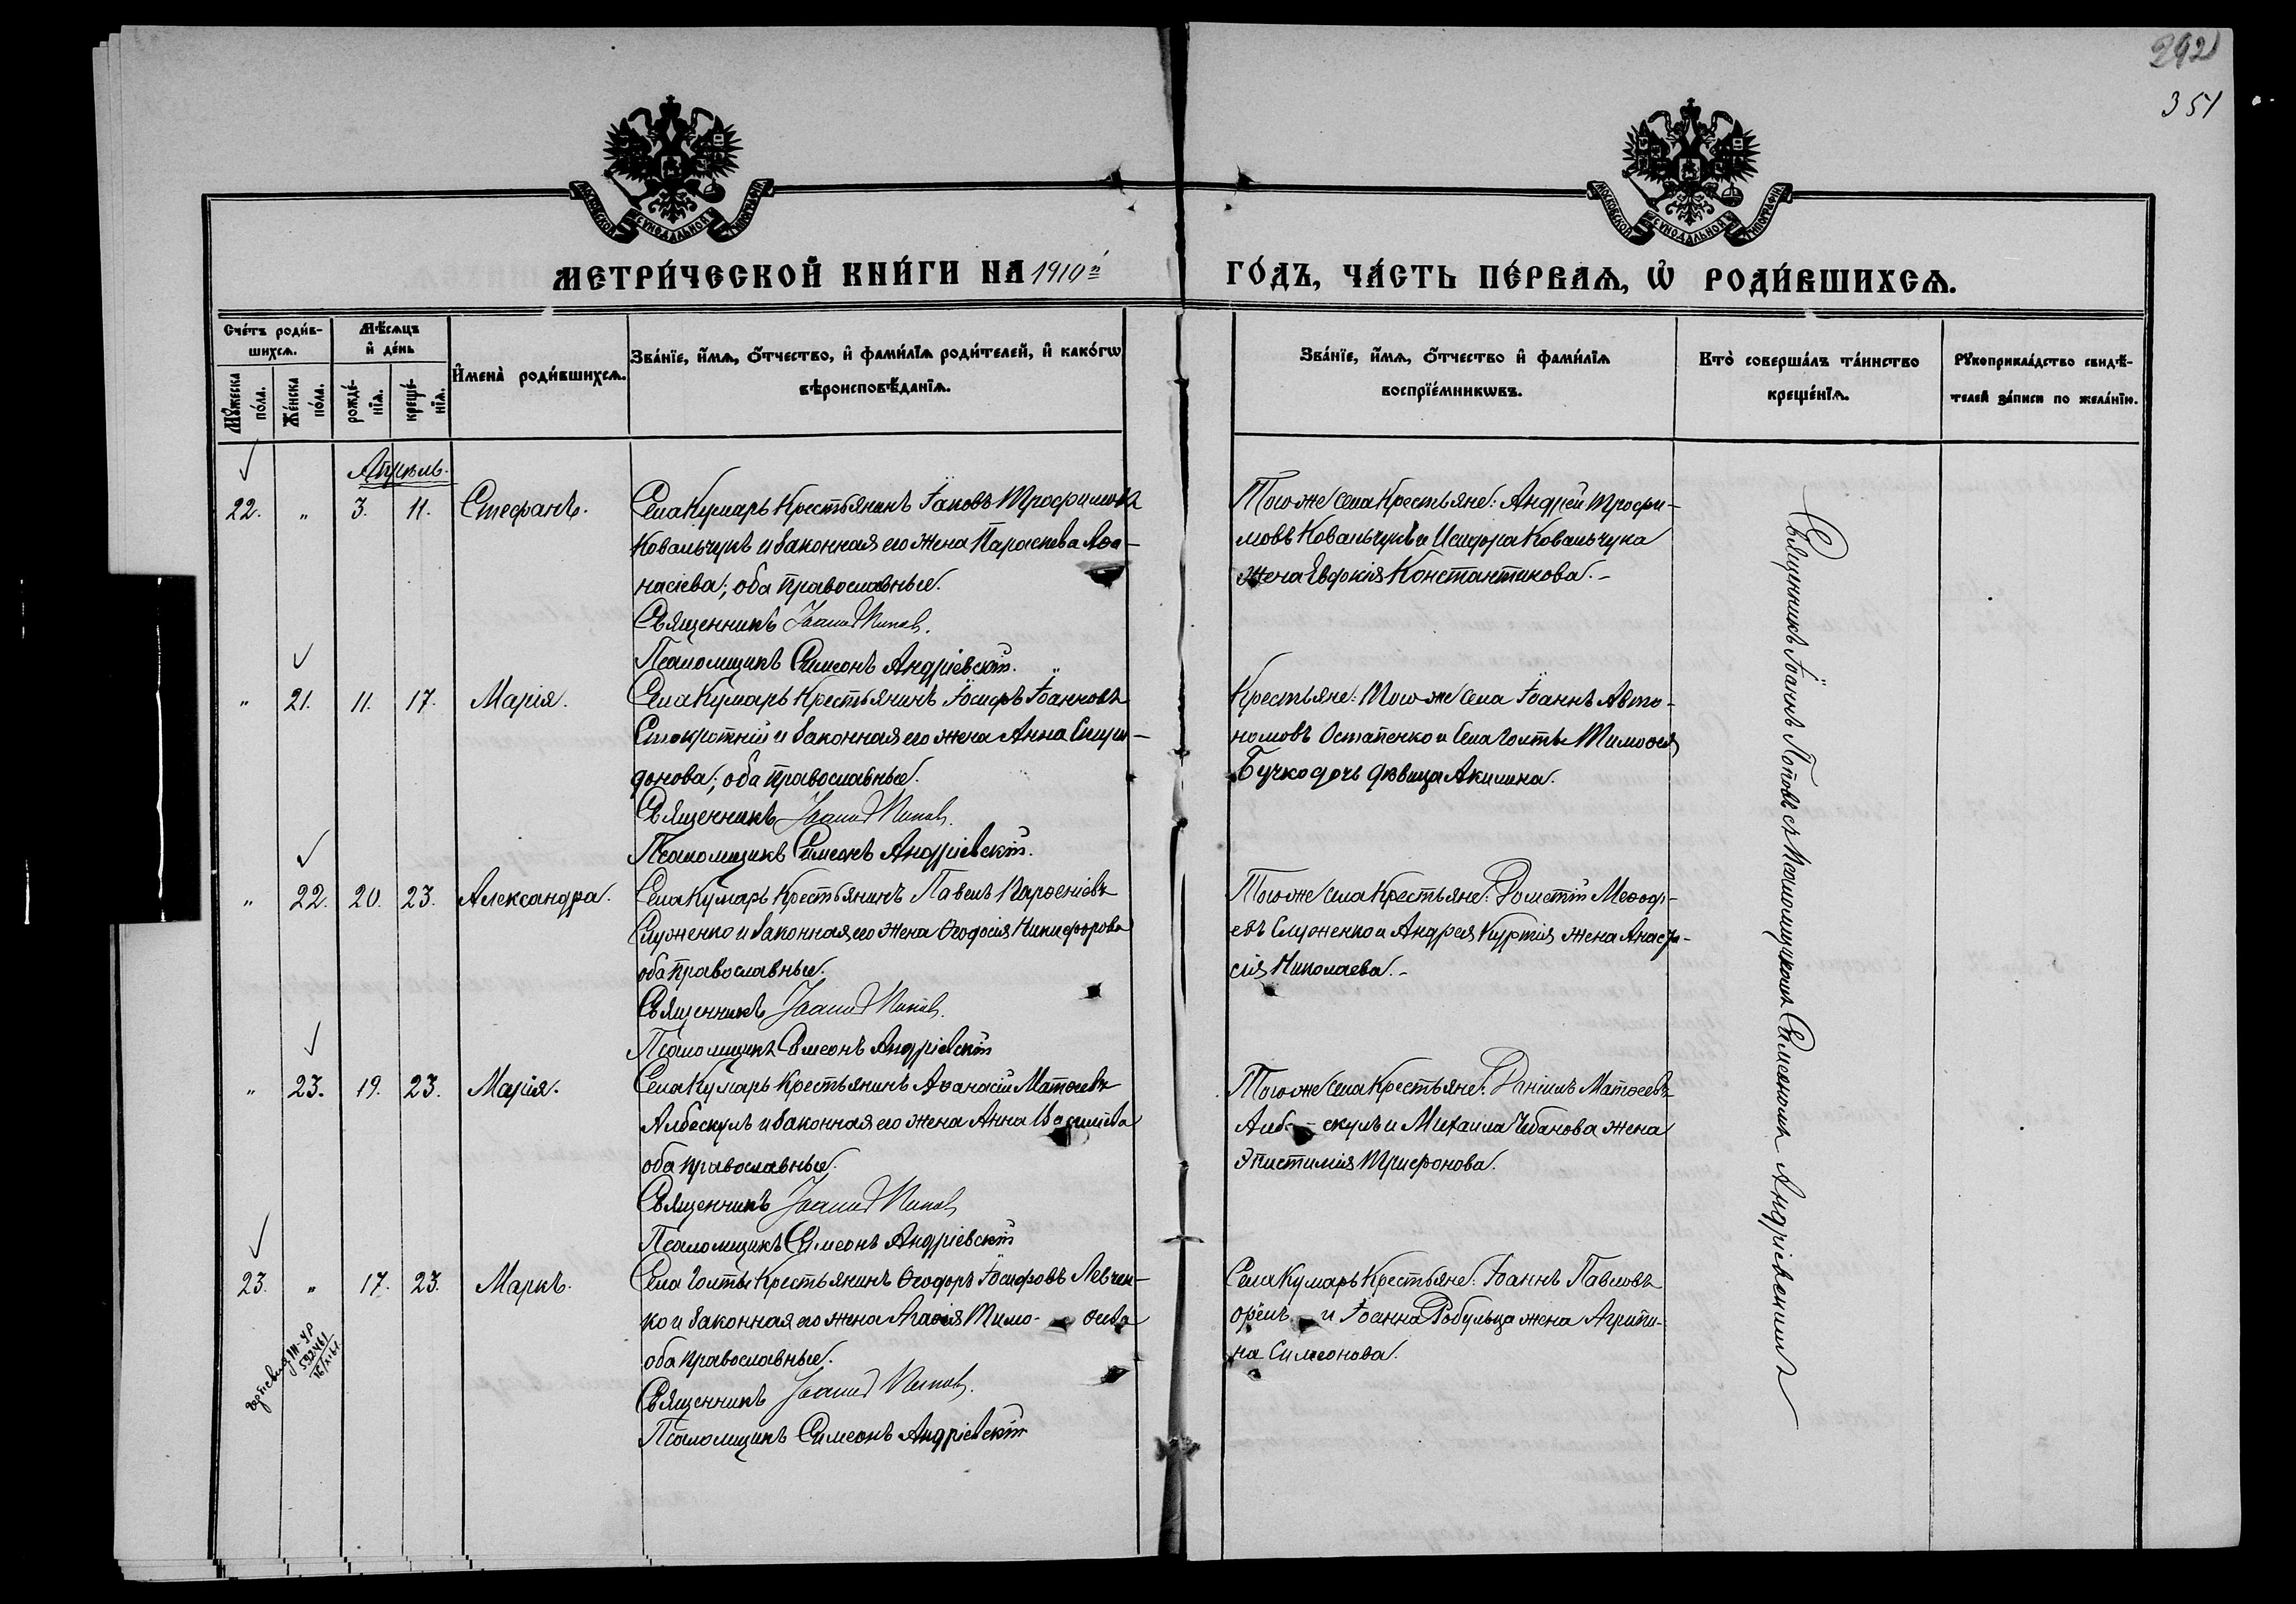 292
351
МОСКОВСКОЙ СѴНОДАЛЬНОЙ ТИПОГРАФІИ
МОСКОВСКОЙ СѴНОДАЛЬНОЙ ТИПОГРАФІИ
МЕТРИ́ЧЕСКОЙ КНИ́ГИ НА 1910й ГО́ДЪ, ЧА́СТЬ ПЕ́РВАѦ, Ѡ҆ РОДИ́ВШИХСѦ.
Сче́тъ роди́в-
шихсѧ.
Мꙋ́жеска по́ла.
Же́нска по́ла.
Мѣ́сѧцъ
и҆ де́нь
рожде́-
нїѧ.
креще́-
нїѧ.
И҆мена̀ роди́вшихсѧ.
Зва́нїе, и҆́мѧ, ѻ҆́тчество, и҆ фами́лїѧ роди́телей, и҆ како́гѡ
вѣроисповѣ́данїѧ.
Зва́нїе, и҆́мѧ, ѻ҆́тчество и҆ фами́лїѧ
воспрїе́мникѡвъ.
Кто̀ соверша́лъ та́инство
креще́нїѧ.
Рꙋкоприкла́дство свидѣ́-
телей за́писи по жела́нїю.
Апрѣль.
22. " 3. 11. Стефанъ.
Села Кумаръ Крестьянинъ Іаковъ Трофимовъ
Ковальчукъ и законная его жена Параскева Аѳа-
насіева; оба православные.
Священникъ Іоаннъ Поповъ.
Псаломщикъ Симеонъ Андріевскій.
Того же села Крестьяне: Андрей Трофи-
мовъ Ковальчукъ и Исидора Ковальчука
жена Евфкія Константинова.-
" 21. 11. 17. Марія.
Села Кумаръ Крестьянинъ Іосифъ Іоанновъ
Стокротній и законная его жена Анна Спири-
донова; оба православные.
Священникъ Іоаннъ Поповъ.
Псаломщикъ Симеонъ Андріевскій.
Крестьяне: Того же села Іоаннъ Авто-
номовъ Остапенко и села Голты Тимоѳея
Бучко дочь дѣвица Акилина.
" 22. 20. 23. Александра.
Села Кумаръ Крестьянинъ Павелъ Парѳеніевъ
Служенко и законная его жена Ѳеодосія Никифорова
оба православные.
Священникъ Іоаннъ Поповъ.
Псаломщикъ Симеонъ Андріевскій
Того же села Крестьяне: Рометій Меѳоді-
евъ Служенко и Андрея Куртія жена Анаста-
сія Николаева.-
" 23. 19. 23. Марія.
Села Кумаръ Крестьянинъ Аѳанасій Матѳеевъ
Албескулъ и законная его жена Анна Василіева
оба православные.
Священникъ Іоаннъ Поповъ
Псаломщикъ Симеонъ Андріевскій
Того же села Крестьяне: Даніилъ Матѳеевъ
Албе-скулъ и Михаила Чебанова жена
Эпистимія Трифонова.
23. " 17. 23. Маркъ.
Села Голты Крестьянинъ Ѳеодоръ Іосифовъ Левчен-
ко и законная его жена Агафія Тимо-ѳеева
оба православные.
Священникъ Іоаннъ Поповъ.
Псаломщикъ Симеонъ Андріевскій
Села Кумаръ Крестьяне: Іоаннъ Павловъ
Орелъ и Іоанна Робульца жена Агрипи-
на Симеонова.
III-УР
592461
Священникъ Іоаннъ Поповъ съ Псаломщикомъ Симеономъ Андріевскимъ